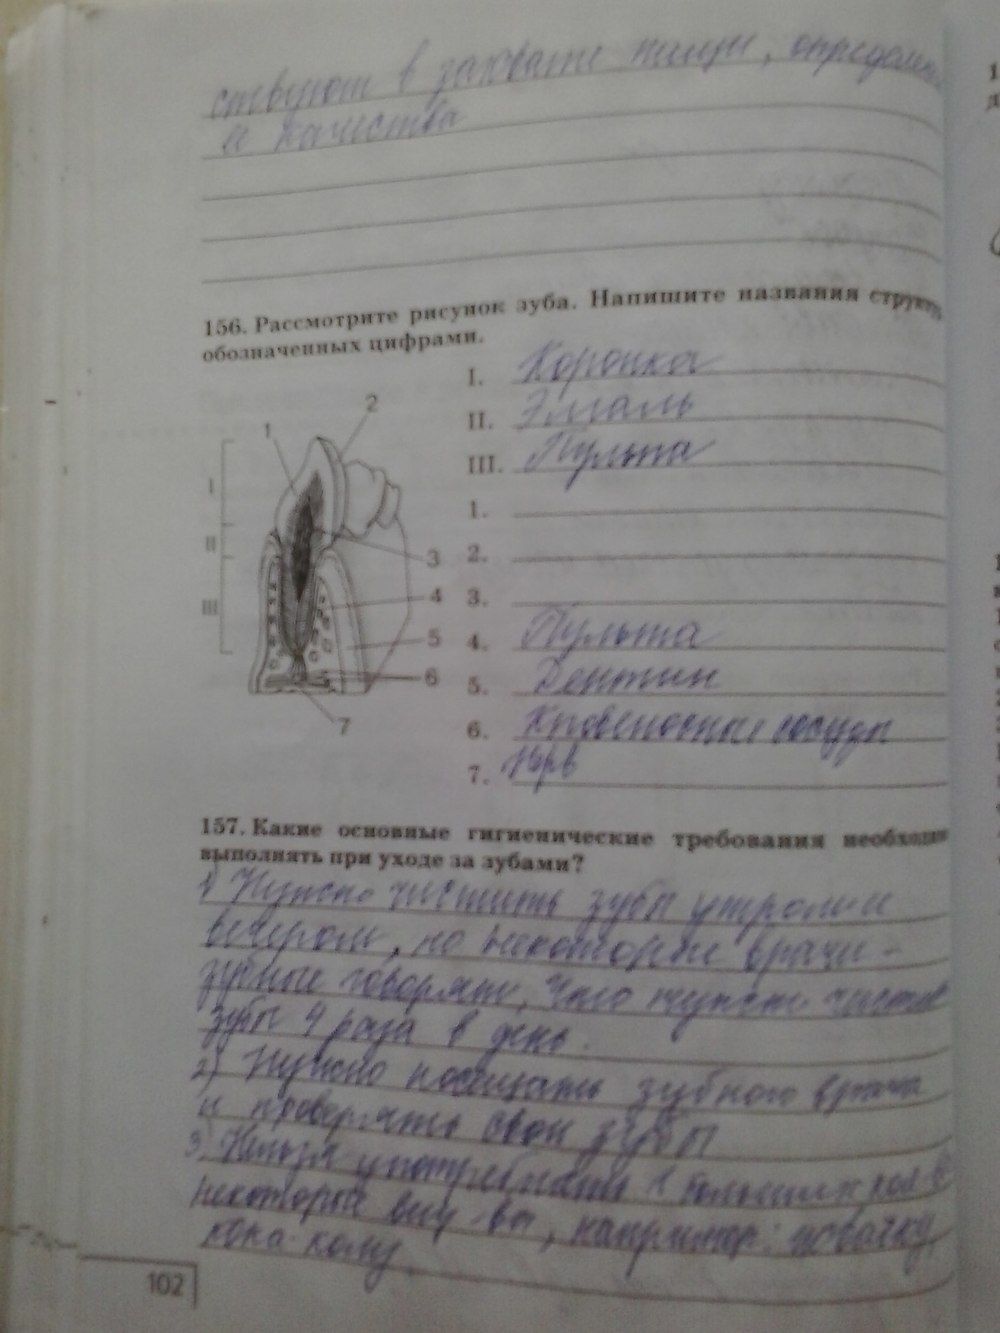 ствуют в захвате пищи, определ
и качества
156. Рассмотрите рисунок зуба. Напишите названия структур,
обозначенных цифрами.
I. Коронка
II. Эмаль
III. Пульпа
1.
2.
3.
4. Пульпа
5. Дентин
6. Кровеносные сосуды
7. Нерв
1
2
3
4
5
6
7
I
II
III
157. Какие основные гигиенические требования необходимо
выполнять при уходе за зубами?
1) Нужно чистить зубы утром и
вечером, но некоторые врачи-
зубные говорят, что нужно чистить
зубы 4 раза в день.
2) Нужно посещать зубного врача
и проверять свои зубы
3) Нельзя употреблять в больших кол-в
некоторые вещ-ва, например:
кока-колу
102
1